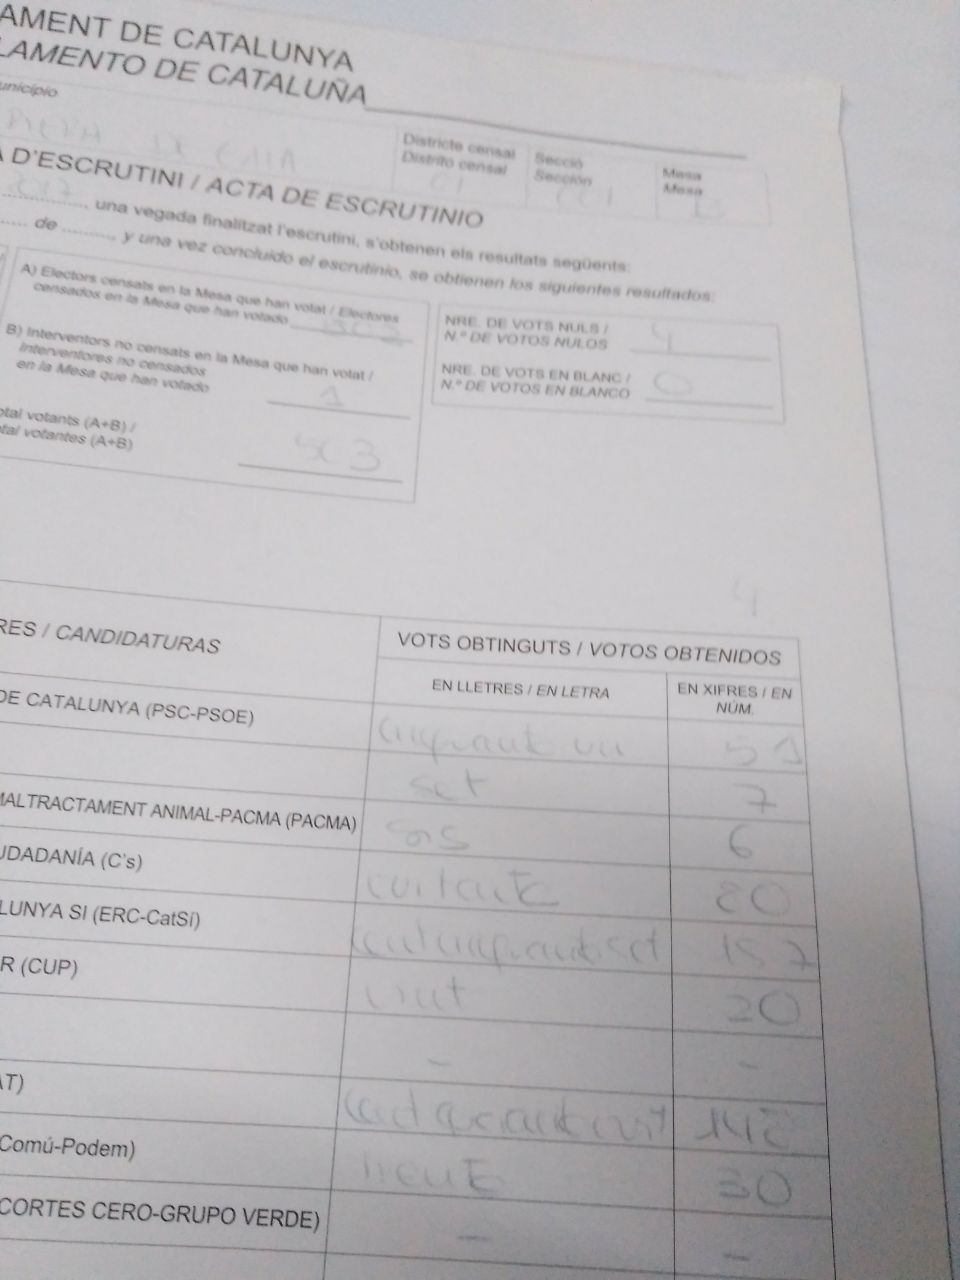 AMENT DE CATALUNYA
LAMENTO DE CATALUÑA
unicipio
DE
Districte censal
Distrito censal
01
Secció
Sección
001
Mesa
Mesa
B
A D'ESCRUTINI / ACTA DE ESCRUTINIO
2017, una vegada finalitzat l'escrutini, s'obtenen els resultats següents:
...... de .........., y una vez concluido el escrutinio, se obtienen los siguientes resultados:
A) Electors censats en la Mesa que han votat / Electores
censados en la Mesa que han votado
B) Interventors no censats en la Mesa que han votat /
Interventores no censados
en la Mesa que han votado
1
otal votants (A+B) /
otal votantes (A+B)
503
NRE. DE VOTS NULS /
N.º DE VOTOS NULOS
4
NRE. DE VOTS EN BLANC /
N.º DE VOTOS EN BLANCO
0
4
RES / CANDIDATURAS
VOTS OBTINGUTS / VOTOS OBTENIDOS
EN LLETRES / EN LETRA
EN XIFRES / EN
NÚM.
DE CATALUNYA (PSC-PSOE)
cinquanta un
51
set
7
MALTRACTAMENT ANIMAL-PACMA (PACMA)
sis
6
UDADANÍA (C's)
vuitanta
80
LUNYA SI (ERC-CatSí)
cent cinquanta set
157
R (CUP)
vint
20
-
-
AT)
cent quaranta vuit
148
Comú-Podem)
trenta
30
CORTES CERO-GRUPO VERDE)
-
-